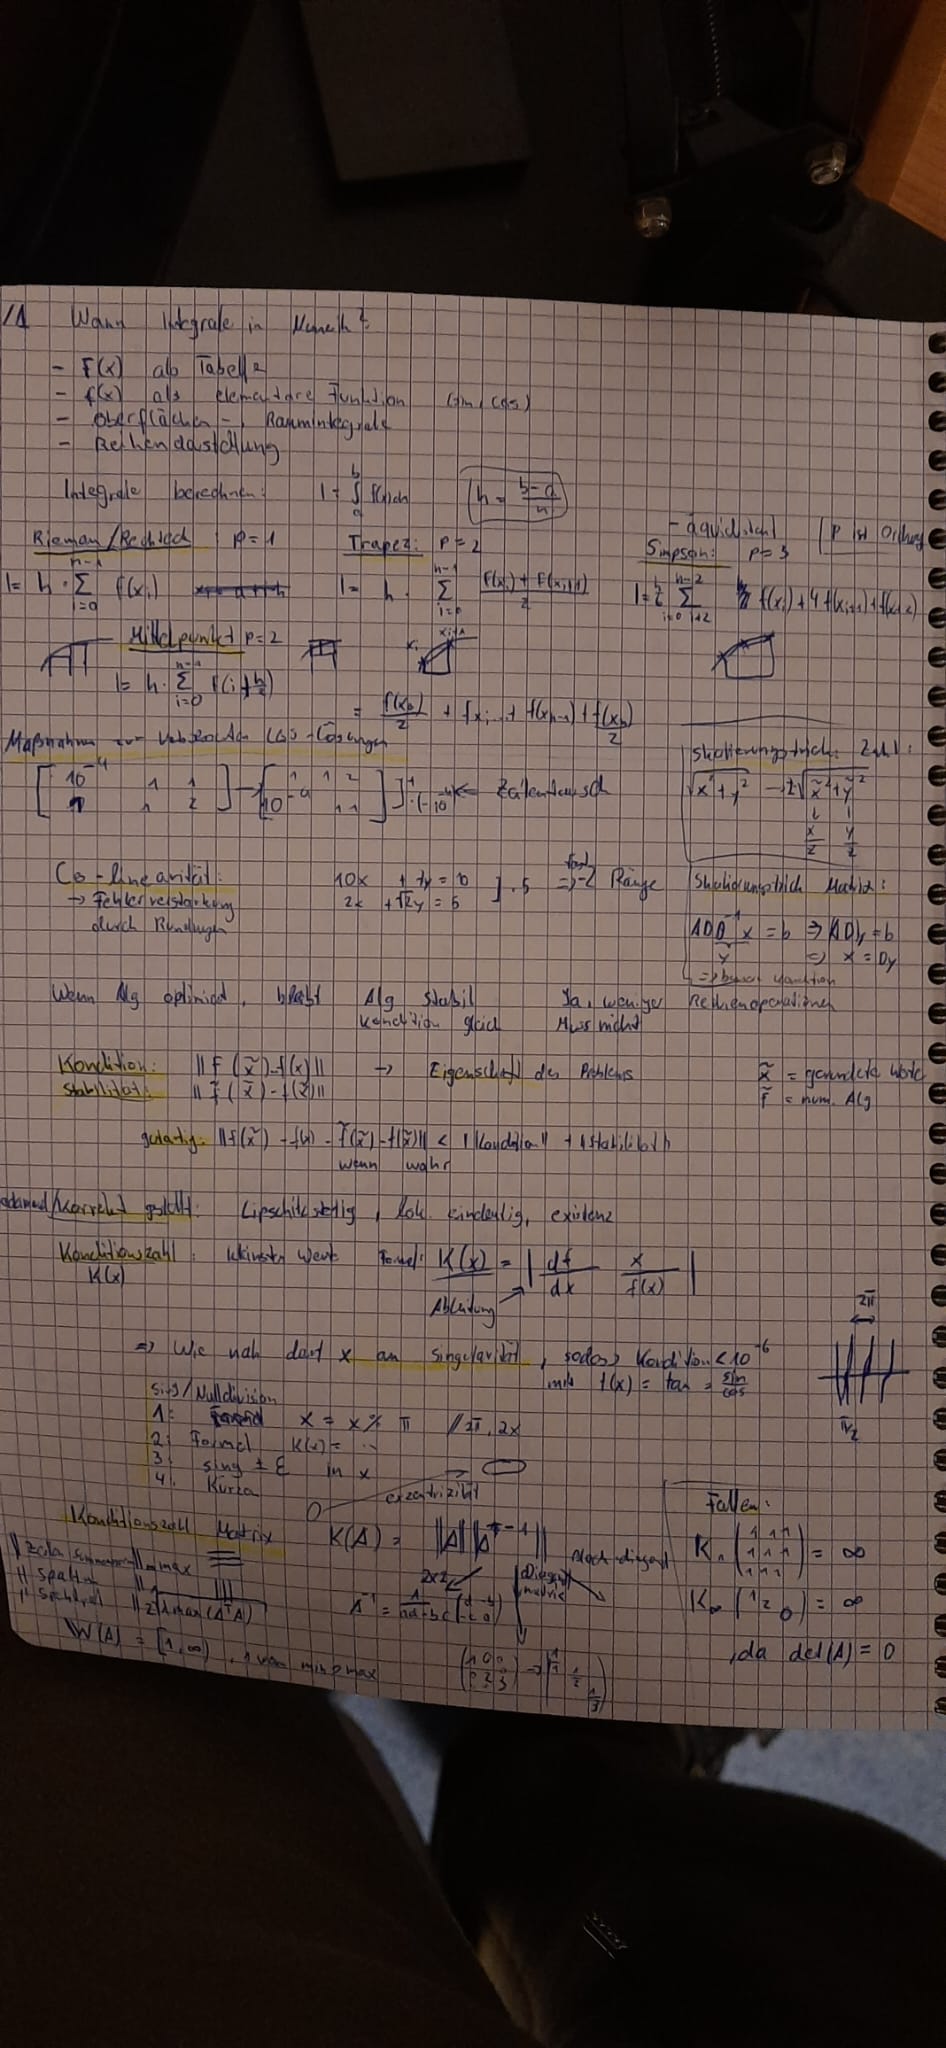 /1 Wann Integrale in Numerik?
- F(x) als Tabelle
- f(x) als elementare Funktion (sin, cos)
- Oberflächen-, Raumintegrale
- Reihendarstellung
Integrale berechnen: I = ∫_a^b f(x)dx h = (b-a)/n
- äquidistant
Rieman/Rechteck p=1 Trapez: p=2 Simpson: p=3 (p ist Ordnung
I = h · Σ_{i=0}^{n-1} f(x_i) I = h · Σ_{i=0}^{n-1} (f(x_i) + f(x_{i+1}))/2 Σ_{i=0, i+2}^{n-2} f(x_i) + 4f(x_{i+1}) + f(x_{i+2})
Mittelpunkt p=2
I = h · Σ_{i=0}^{n-1} f(i + h/2)
= f(x_0)/2 + f x_i ... + f(x_{n-1}) + f(x_b)/2
Maßnahmen zum LGS-Lösungen
[10^-4 1 1 / 1 1 2] → [1 1 2 / 10^-4 1 1] · (-10^-4) ← Zeilentausch
Skalierungstrick Zahl:
√(x²+y²) → z√(x̃²+ỹ²)
x/z y/z
Co-linearität:
→ Fehlerverstärkung
durch Rundungen
10x + 7y = 10
2x + √2y = 5 ] · 5 ⇒ fast 2 Ränge
Skalierungstrick Matrix:
ADD^-1 x = b ⇒ ADy = b
y ⇒ x = Dy
⇒ besser Kondition
Wenn Alg optimiert, bleibt Alg stabil Ja, weniger Rechenoperationen
Kondition gleich Muss nicht
Kondition: ||f(x̃)-f(x)|| → Eigenschaft des Problems
Stabilität: ||f̃(x̃)-f(x̃)||
x̃ = gerundete Werte
f̃ = num. Alg
gutartig: ||f(x̃) - f(x) - f̃(x̃) - f(x̃)|| < "Kondition" + Stabilität
wenn wahr
/korrekt gestellt: Lipschitzstetig, Lok. eindeutig, existenz
Konditionszahl: kleinster Wert Formel: K(x) = | df/dx x/f(x) |
K(x)
Ableitung
⇒ Wie nah darf x an singularität, sodass Kondition < 10^-6
mit f(x) = tan = sin/cos
2π
π/2
sing/Nulldivision
1: x = x % π // 2π, 2x
2: Formel K(x) = ...
3: sing ± ε in x
4: Kürze
exzentrizität
Konditionszahl Matrix K(A) = ||A|| ||A^-1||
|| Zeilen Summen ||_∞ max
|| Spalten ||_1
|| Spektral ||_2 √λmax(A^T A)
2x2
A^-1 = 1/(ad-bc) (d -b / -c a)
Diagonal
matrix
Blockdiagonal
W(A) = [1, ∞)
Fallen:
K (1 1 1 / 1 1 1 / 1 1 1) = ∞
K_∞ (1 2 0) = ∞
, da det(A) = 0